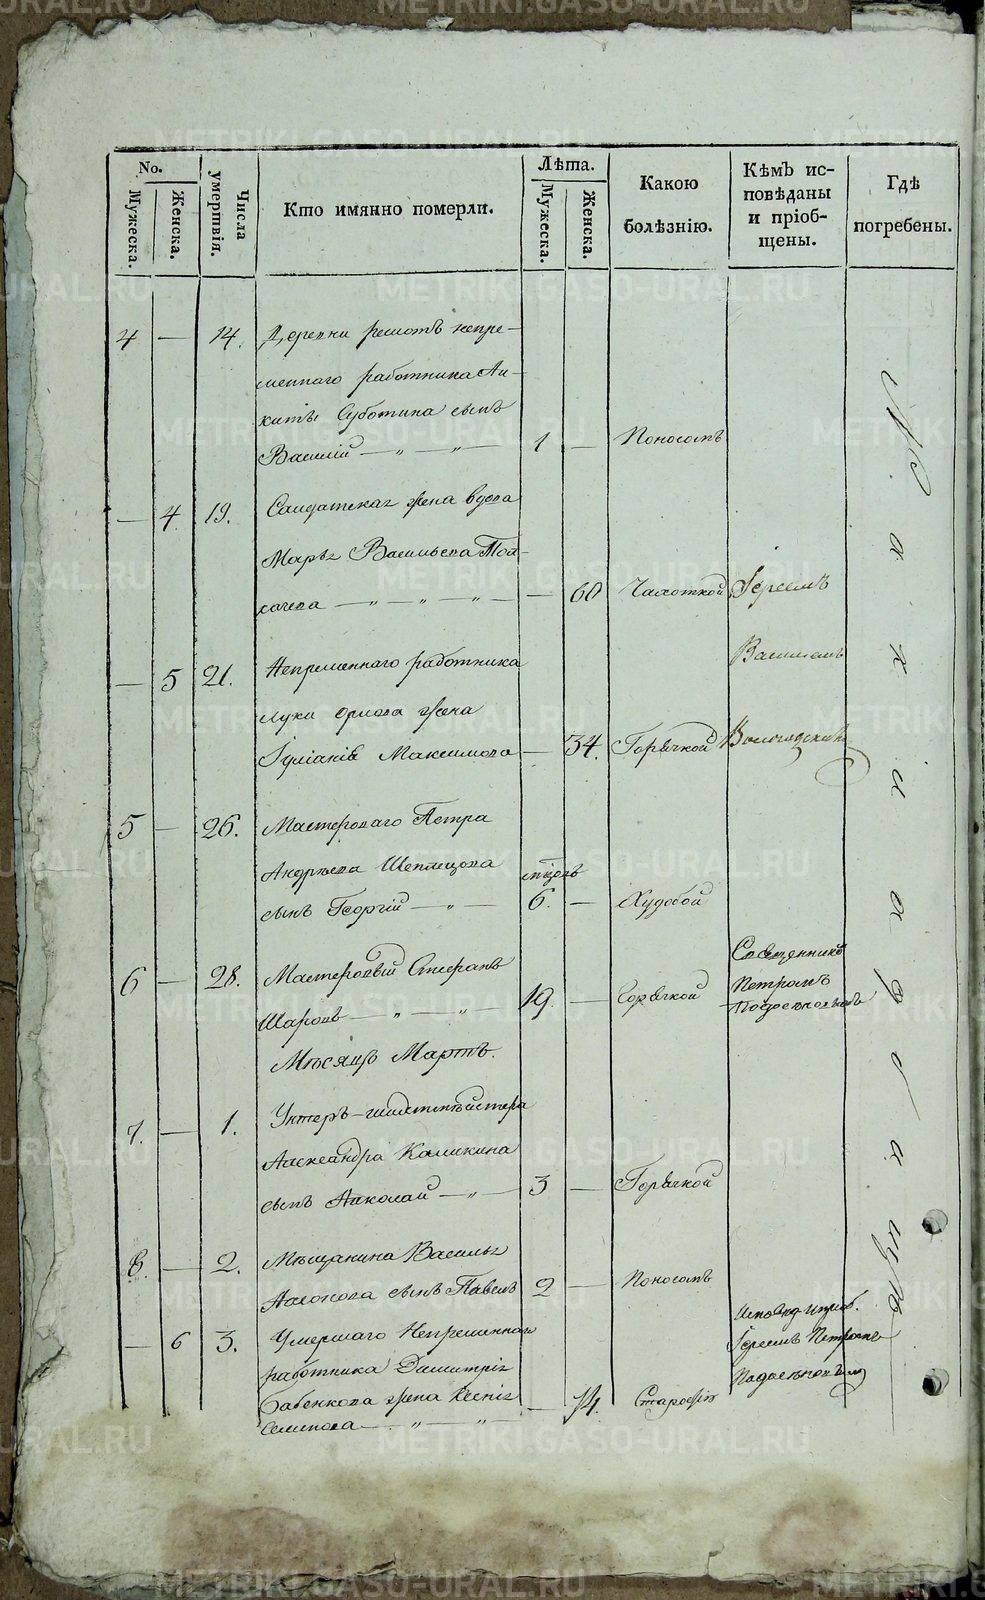 METRIKI.GASO-URAL.RU
No.
Мужеска.
Женска.
Числа умертвія.
Кто имянно померли.
Лѣта.
Мужеска.
Женска.
Какою болѣзнію.
Кѣмъ исповѣданы и пріобщены.
Гдѣ погребены.
4 — 14. Деревни решотъ непре-
меннаго работника Ни-
киты Суботина сынъ
Василій — „ — „ — 1 — Поносомъ
— 4 19. Салдатская жена вдова
Марья Васильева
— „ — „ — „ — — 60 Чахоткой Іереемъ
Василіемъ
— 5 21. Непременнаго работника
Луки Орлова жена
Іуліанія Максимова — 34. Горячкой Вологодскимъ
5 — 26. Мастероваго Петра
Андрѣева Шепецова мѣцовъ
сынъ Георгій — „ — 6. — Худобой
6 — 28. Мастеровый Стефанъ
Шаровъ — „ — „ — 19. — Горячкой
Священникомъ
Петромъ
Мѣсяцъ Мартъ.
7. — 1. Унтеръ-шихтмейстера
Александра Каликина
сынъ Николай — „ — 3 — Горячкой
8. — 2. Мѣщанина Василья
сынъ Павелъ 2 — Поносомъ
— 6 3. Умершаго Непременнаго
работника Димитрія
Бабенкова жена
Семенова — „ — „ — — 74. Старостію
Исповед. и приоб.
Іереемъ Петромъ
На кладбищѣ